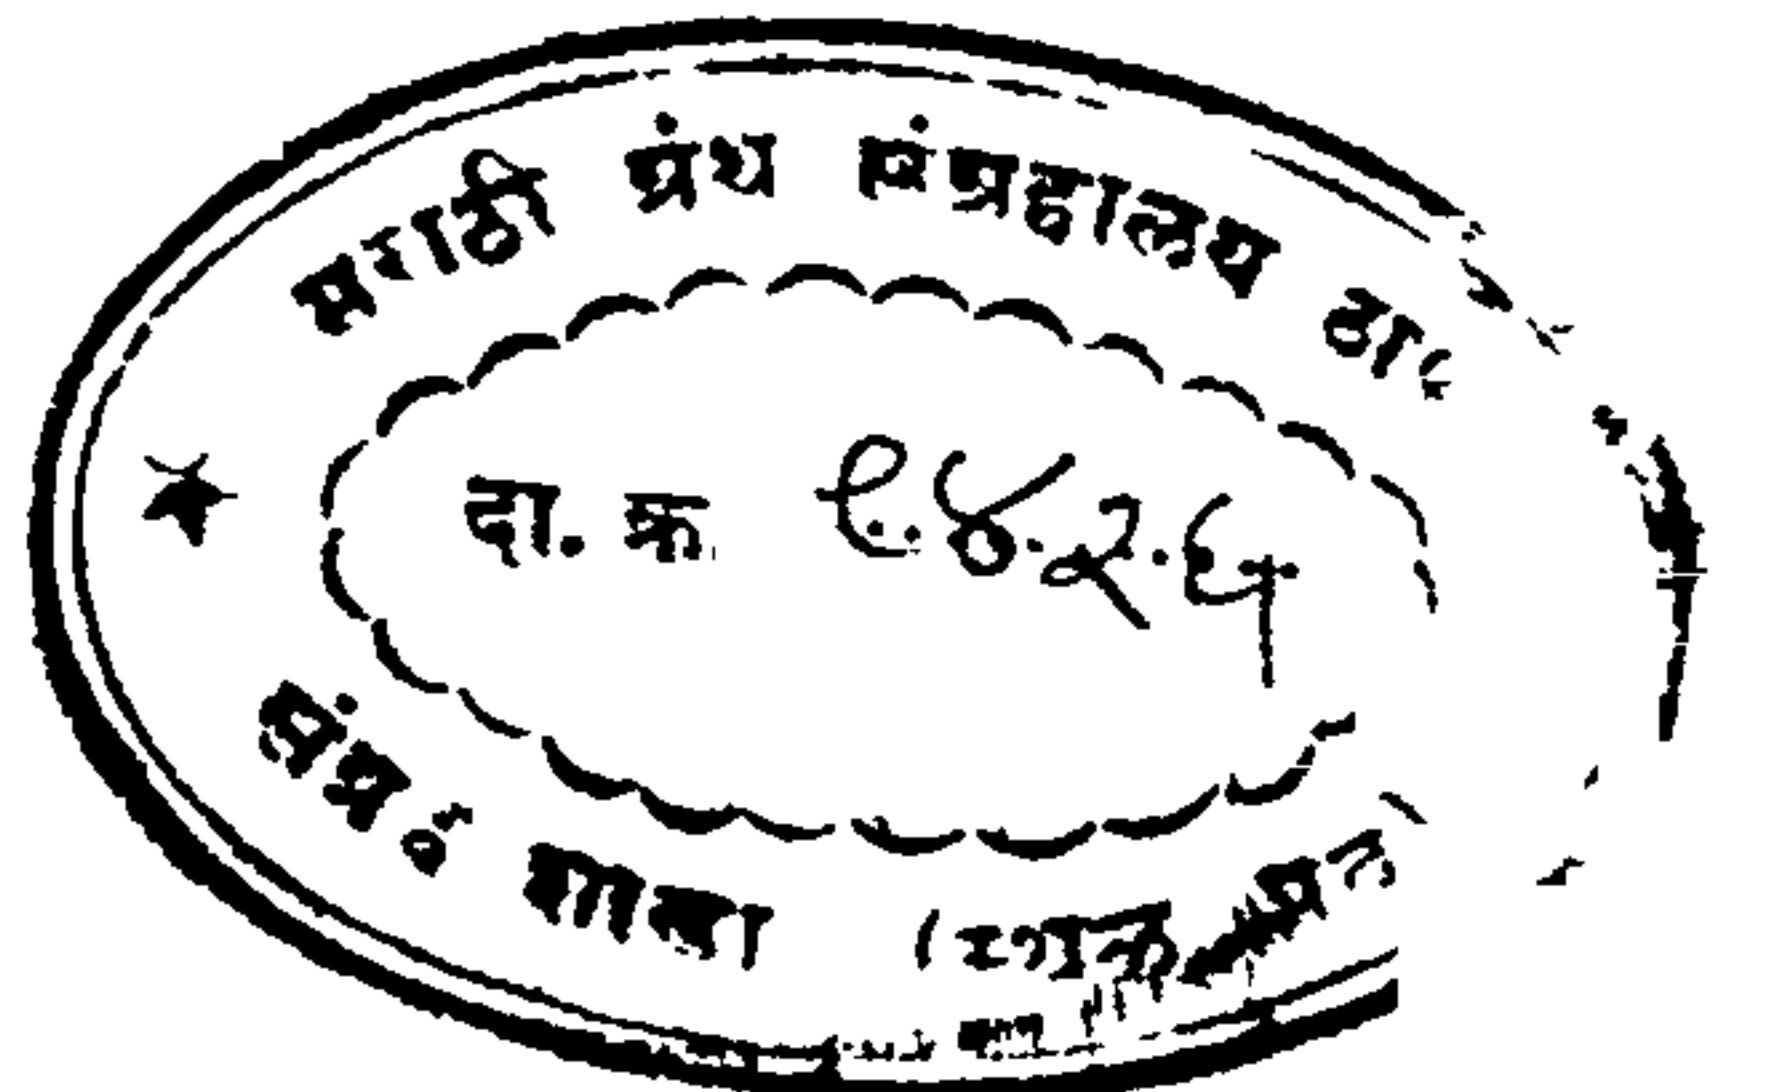 मराठी ग्रंथ संग्रहालय
दा. क्र ९४२५
संग्रह शाखा